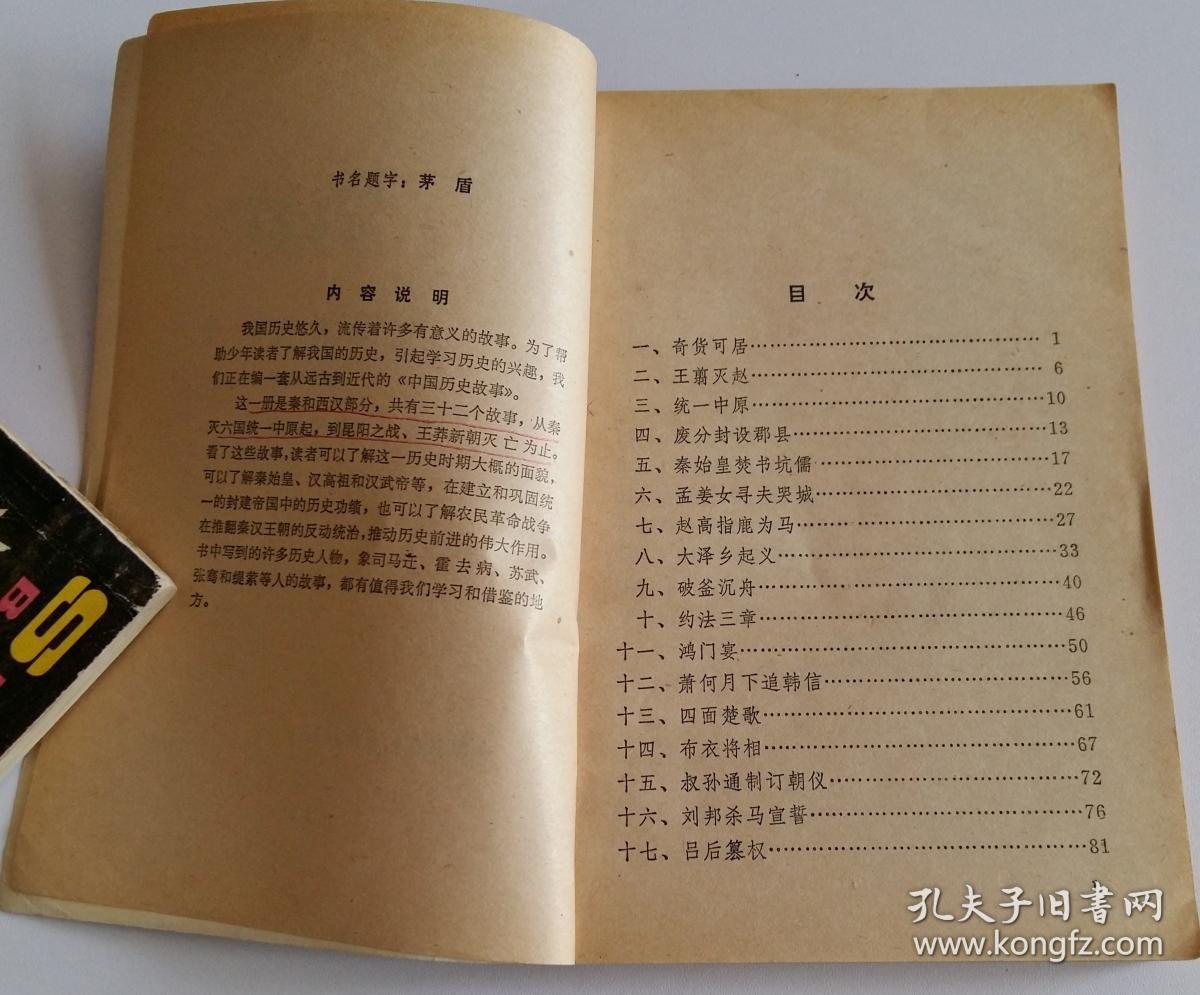 书名题字：茅 盾
内容说明
我国历史悠久，流传着许多有意义的故事。为了帮
助少年读者了解我国的历史，引起学习历史的兴趣，我
们正在编一套从远古到近代的《中国历史故事》。
这一册是秦和西汉部分，共有三十二个故事，从秦
灭六国统一中原起，到昆阳之战、王莽新朝灭亡为止。
看了这些故事，读者可以了解这一历史时期大概的面貌，
可以了解秦始皇、汉高祖和汉武帝等，在建立和巩固统
一的封建帝国中的历史功绩，也可以了解农民革命战争
在推翻秦汉王朝的反动统治，推动历史前进的伟大作用。
书中写到的许多历史人物，象司马迁、霍去病、苏武、
张骞和缇萦等人的故事，都有值得我们学习和借鉴的地
方。
目 次
一、奇货可居……1
二、王翦灭赵……6
三、统一中原……10
四、废分封设郡县……13
五、秦始皇焚书坑儒……17
六、孟姜女寻夫哭城……22
七、赵高指鹿为马……27
八、大泽乡起义……33
九、破釜沉舟……40
十、约法三章……46
十一、鸿门宴……50
十二、萧何月下追韩信……56
十三、四面楚歌……61
十四、布衣将相……67
十五、叔孙通制订朝仪……72
十六、刘邦杀马宣誓……76
十七、吕后篡权……81
1
孔夫子旧书网
www.kongfz.com